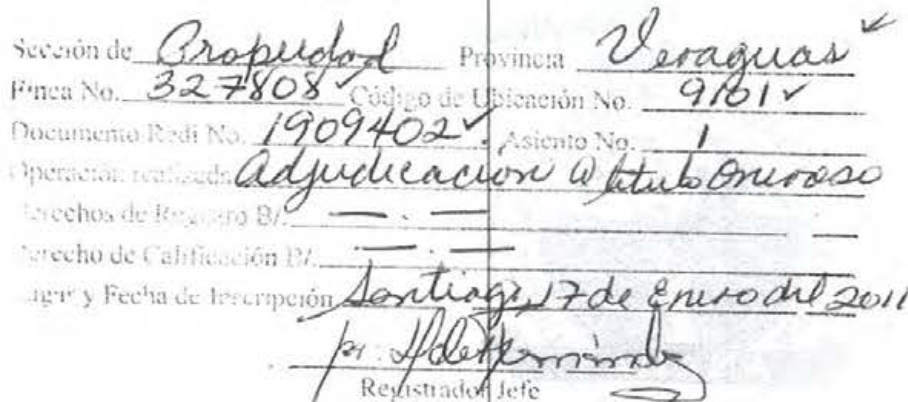 Sección de Propiedad Provincia Veraguas
Finca No. 327808 Código de Ubicación No. 9101
Documento Redi No. 1909402 Asiento No. 1
Operación realizada Adjudicación a titulo Oneroso
Derechos de Registro B/. — . —
Derecho de Calificación B/. — . —
Lugar y Fecha de Inscripción Santiago, 17 de Enero del 2011
Registrador Jefe